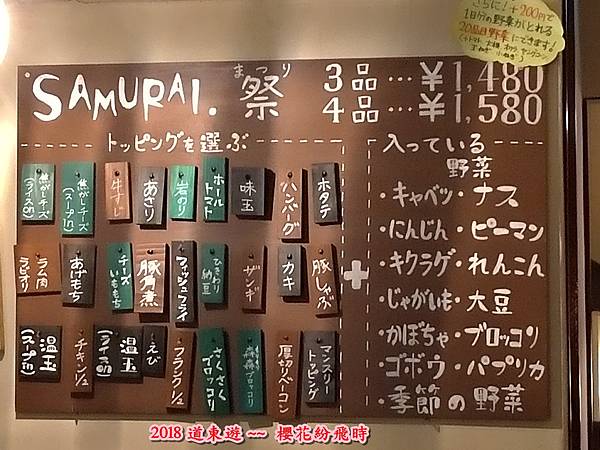 さらに!+200円で
1日分の野菜がとれる
20品目野菜にできます!
SAMURAI.祭
まつり
3品…¥1,480
4品…¥1,580
トッピングを選ぶ
焦がしチーズ(ライスon)
焦がしチーズ(スープin)
牛すじ
あさり
岩のり
ホールトマト
味玉
ハンバーグ
ホタテ
ラム肉ラビオリ
あげもち
チーズいももち
豚角煮
フィッシュフライ
ひきわり納豆
ザンギ
カキ
豚しゃぶ
温玉(スープin)
チキン1/2
温玉(ライスon)
えび
フランク1/2
さくさくブロッコリ
森森ブロッコリ
厚切りベーコン
マンスリートッピング
+
入っている野菜
・キャベツ・ナス
・にんじん・ピーマン
・キクラゲ・れんこん
・じゃがいも・大豆
・かぼちゃ・ブロッコリ
・ゴボウ・パプリカ
・季節の野菜
2018 道東遊 ~~ 櫻花紛飛時